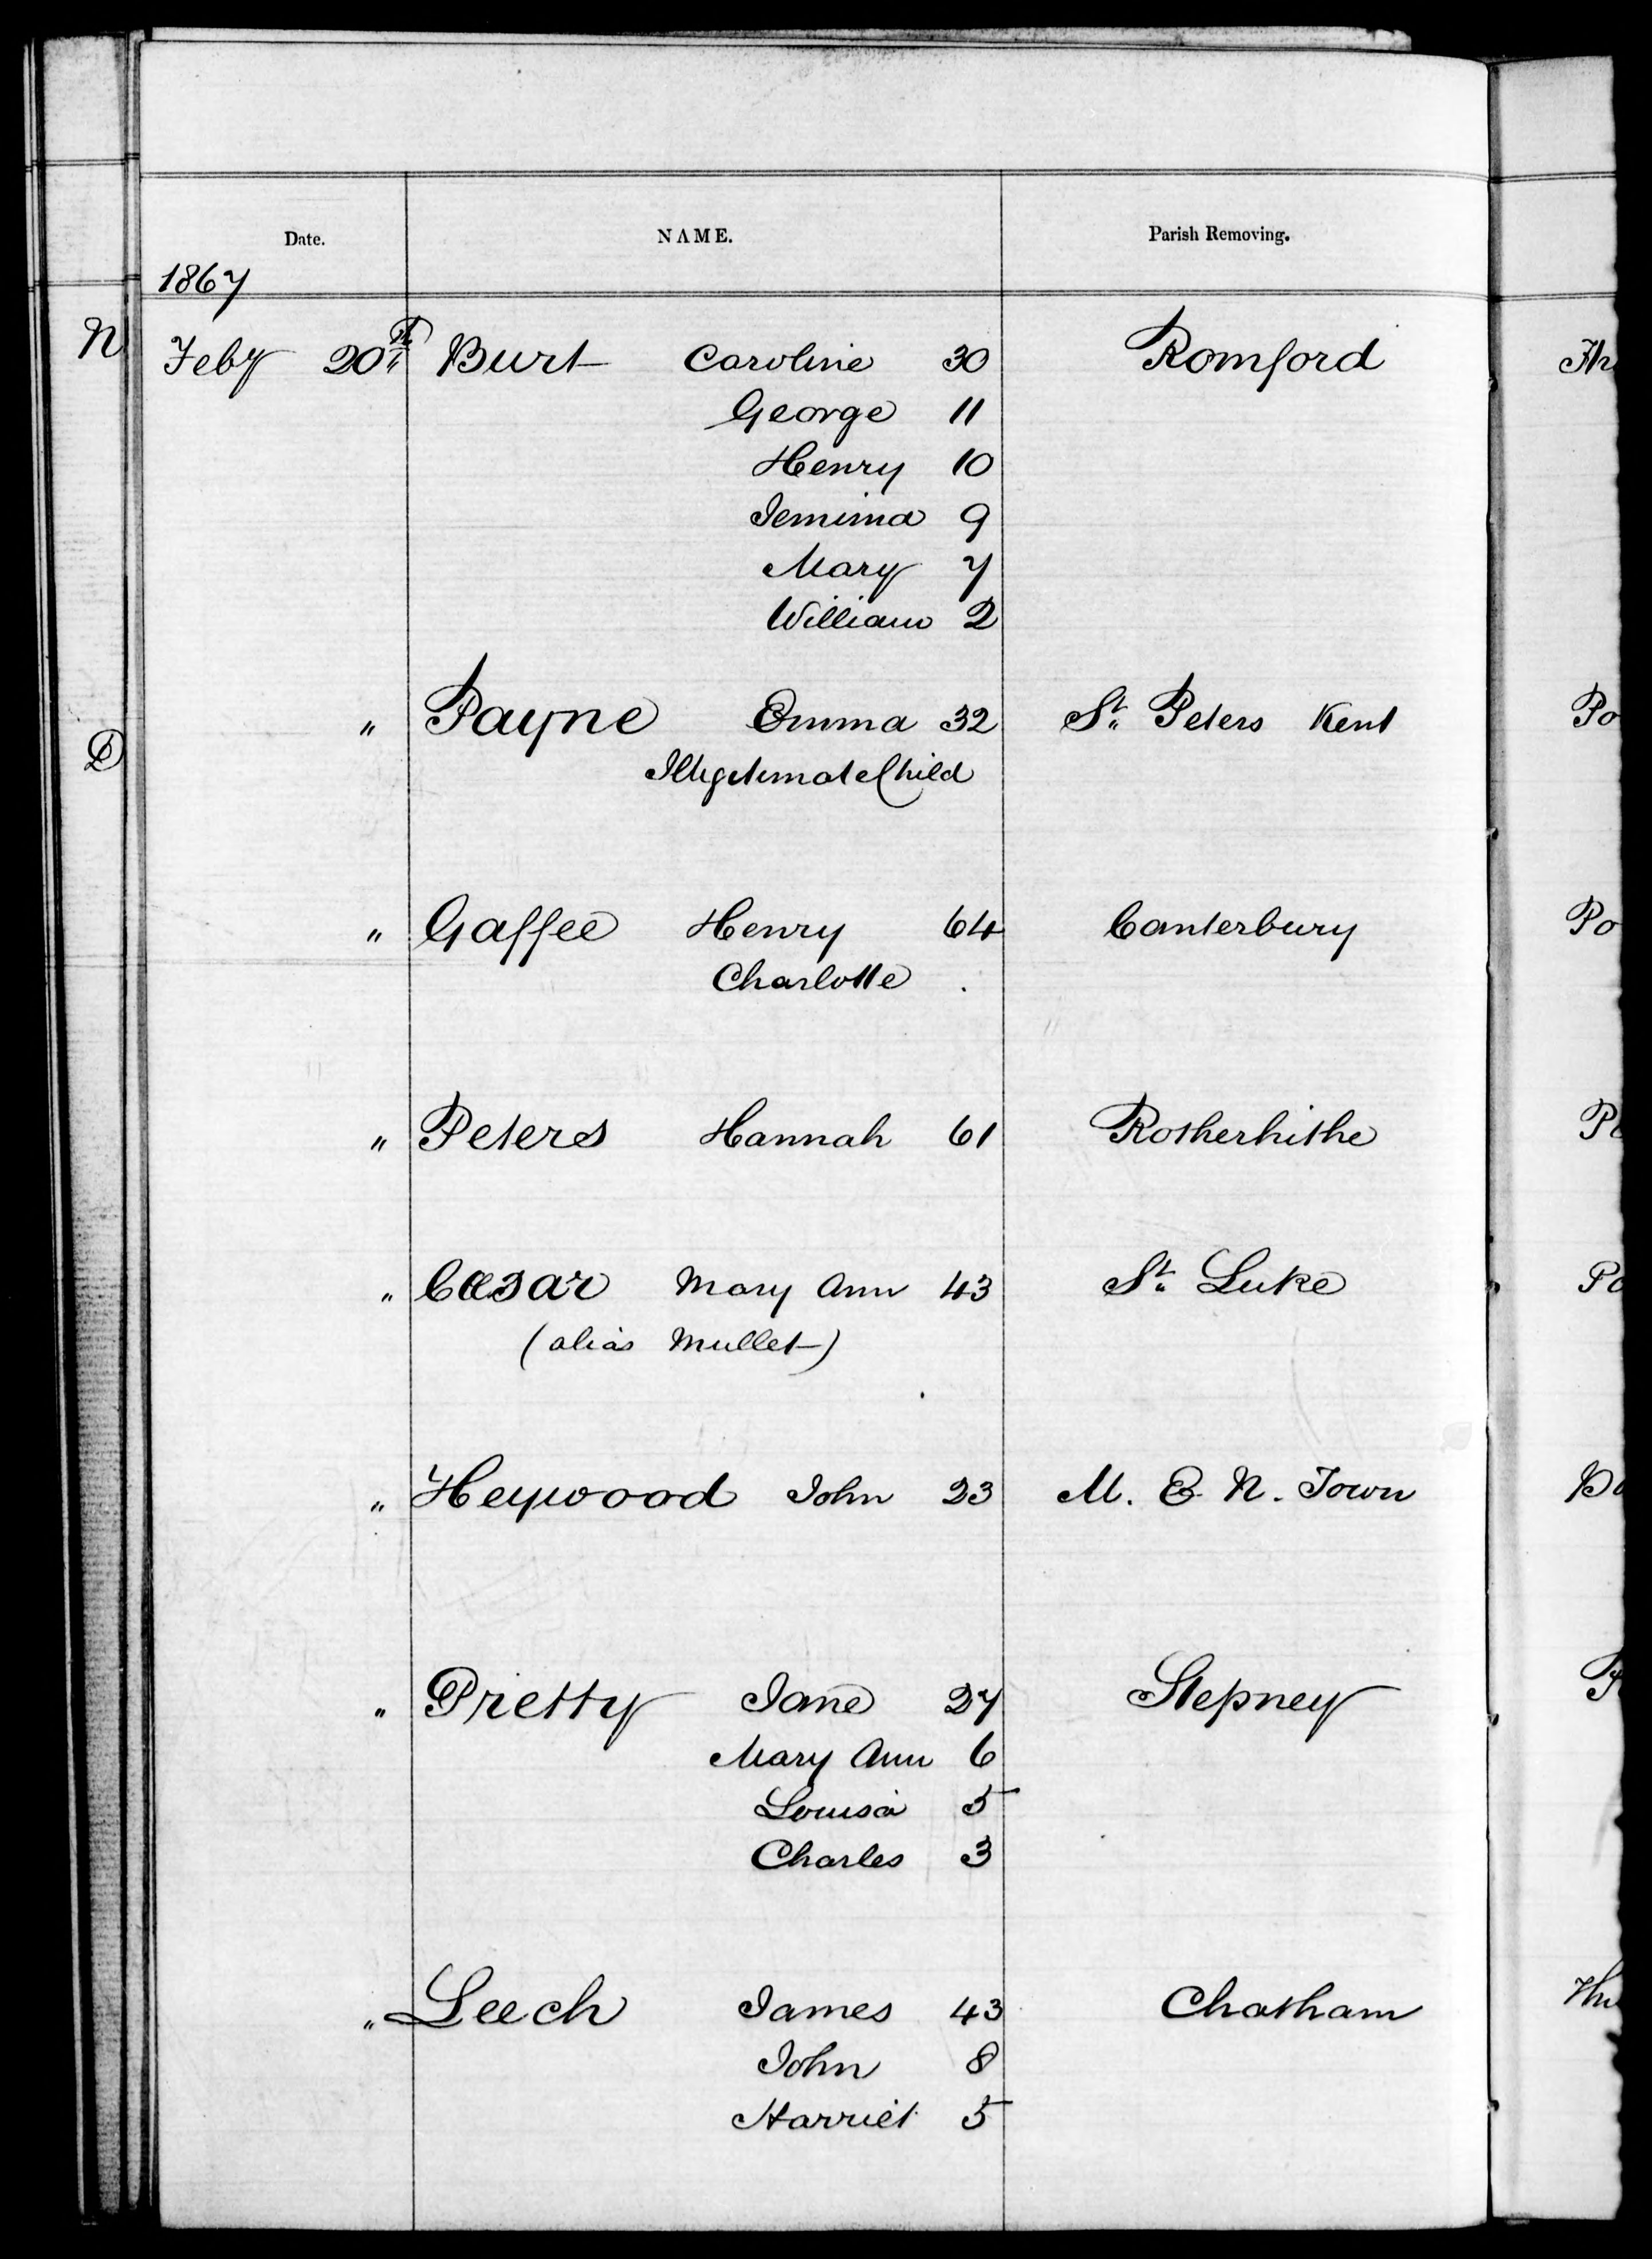 Date. NAME. Parish Removing.
1867
N Feby 20th Burt Caroline 30 Romford
George 11
Henry 10
Jemima 9
Mary 7
William 2
" Payne Emma 32 St. Peters Kent Po
D
Illegitimate Child
" Gaffee Henry 64 Canterbury Po
Charlotte .
" Peters Hannah 61 Rotherhithe
" Cæsar Mary Ann 43 St. Luke Po
(alias Mullet)
" Heywood John 23 M. E. N. Town
" Pretty Jane 27 Stepney
Mary Ann 6
Louisa 5
Charles 3
" Leech James 43 Chatham
John 8
Harriet 5